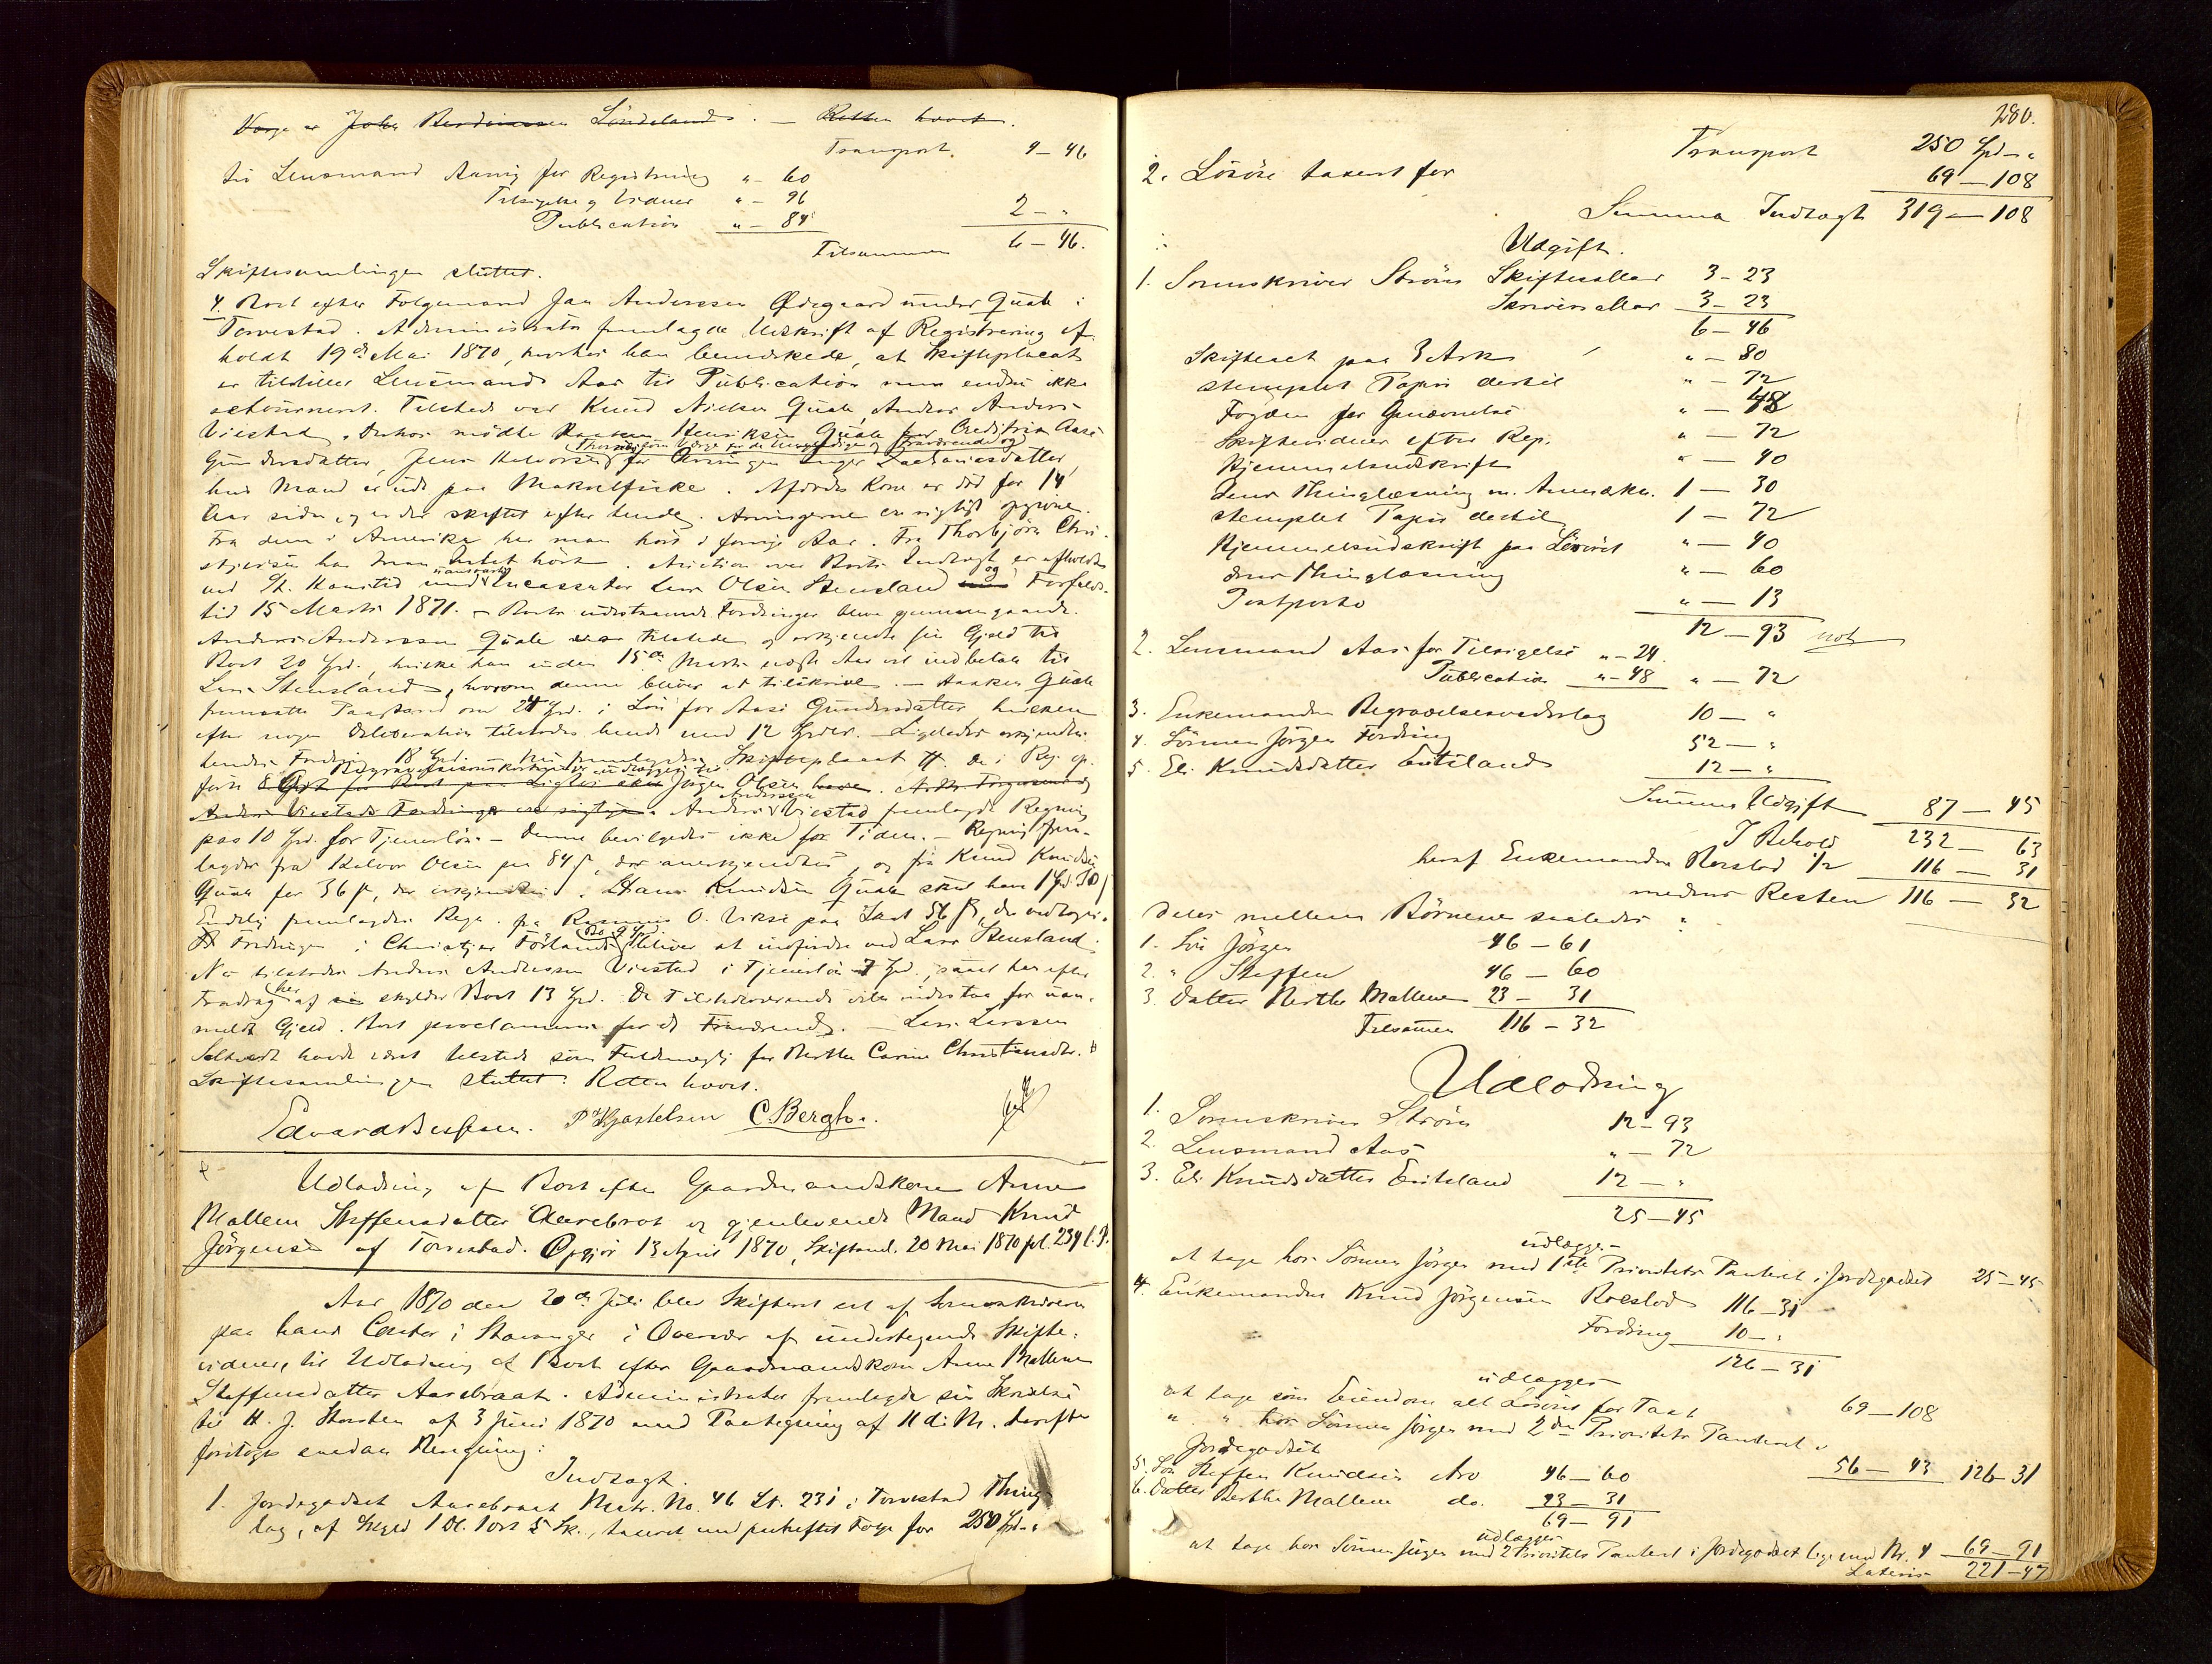 Verge er John Sundelands. — Retten hævet.
Transport. 4 – 46
til Lensmand Aanig for Registrering " – 60
Tilsigelse og Vidner " – 96
Publication " – 84 2 – "
Tilsammen 6 – 46.
Skiftesamlingen sluttet.
4. Boet efter Folgemand Jan Anderssen Ødegaard under Quale i
Torvestad. Administrator fremlagde Udskrift af Registrering af-
holdt 19de Mai 1870, hvorhos han bemærkede, at Skifteplacat
er tilstillet Lensmand Aas til Publication men endnu ikke
retourneret. Tilstede var Knud Nielsen Quale, Anders Anders-
Viestad. Derhos mødte Henriksen Quale for Creditrix Aase
Gundersdatter, Jens Halvorsen for Arvingen Inger Zachariasdatter,
hvis Mand er ude paa Makrelfiske. Afdødes Kone er død for 14
Aar siden, og er der skiftet efter hende. Arvingerne ere rigtigt opgivne.
Fra dem i Amerika har man hørt i forrige Aar. Fra Thorbjørn Chri-
stjersen har man Intet hørt. Auction over Boets Indtægt er afholdt
ved Incassator Lars Olsen Stensland og Forfalds-
tid 15 Marts 1871. – Boets udestaaende Fordringer blev gjennemgaaede.
Anders Anderssen Quale var tilstede og erkjendte sin Gjeld til
Boet 20 Spd., hvilke han inden 15de Marts næste Aar vil indbetale til
Lars Stensland, hvorom denne bliver at tilskrive. – Haaken Quale
fremsatte Paastand om 24 Spd. i Løn for Aase Gundersdatter hvilken
efter nogen Deliberation tilstodes hende med 12 Spdlr. – Ligeledes erkjendtes
hendes Fordring 18 Spd. – Skifteplacat De i Reg. op-
førte 8 Spd. Jørgen Olsen
Anders Viestads Fordringer ere rigtige. Anders Anderssen Viestad fremlagde Regning
paa 10 Spd. for Tjenerløn. – Denne bevilgedes ikke for Tiden. – Regning frem-
lagdes fra Halvor Olsen paa 84 s, der anerkjendtes, og fra Knud Knudsen
Quale for 36 s, der erkjendtes. Hans Knudsen Quale skal have 1 Spd.
Endelig fremlagdes Regn. fra Rasmus O. Vikse paa Skat 56 s, der vedtoges.
Fordringer i Christjer Førland bliver at indfordre ved Lars Stensland.
Nu tilstodes Anders Anderssen Viestad i Tjenerløn 7 Spd., saaledes han efter
Fradrag heraf skylder Boet 13 Spd. De Tilstedeværende ville indestaa for uan-
meldt Gjeld. Boet proclameres for de Fraværende. – Lars Larssen
havde været tilstede som Fuldmægtig for Berthe Carine Christiansdtr.
Skiftesamlingen sluttet. Retten hævet.
Edvard Bessesen. P. Hjartelsen C. Bergh.
Udlodning af Boet efter Gaardmandskone Anne
Mallene Steffensdatter Aarebrot og gjenlevende Mand Knud
Jørgensen af Torvestad. Opgjør 13 April 1870, Skiftsaml. 20 Mai 1870 fol. 239 l. P.
Aar 1870 den 20de Juli blev Skifteret sat af Sorenskriveren
paa hans Contor i Stavanger i Overvær af undertegnede Skifte-
vidner, til Udlodning af Boet efter Gaardmandskone Anne Mallene
Steffensdatter Aarebraat. Administrator fremlagde sin Skrivelse
til H. J. Horsten af 3 Juni 1870 med Paategning af 11 d. M. Derefter
foretoges saadan Beregning:
Indtægt.
1. Jordegodset Aarebraat Matr. No. 46 Lb. 231 i Torvestad Thing-
lag, af Skyld 1 Dl. 1 Ort 5 Sk., taxeret med paaheftet Føge for 250 Spd – "
280.
Transport 250 Spd – "
2. Løsøre taxeret for 69 – 108
Summa Indtægt 319 – 108
Udgift.
1. Sorenskriver Strøm Skiftesallar 3 – 23
Skriversallar 3 – 23
6 – 46
Skifteact paa 3 Ark " – 80
stemplet Papir dertil " – 72
Fogden for Gjennemsee " – 48
Skiftevidner efter Reg. " – 72
Hjemmelsudskrift " – 40
dens Thinglæsning m. Anmærkn. 1 – 30
stemplet Papir dertil 1 – 72
Hjemmelsudskrift paa Løsøret " – 40
dens Thinglæsning " – 60
Postporto " – 13
12 – 93
2. Lensmand Aas for Tilsigelse " – 24
Publication " – 48 " – 72
3. Enkemanden Begravelsesvederlag 10 – "
4. Sønnen Jørgen Fordring 52 – "
5. Eli Knudsdatter Eritsland 12 – "
Summa Udgift 87 – 45
I Behold 232 – 63
heraf Enkemandens Boeslod 1/2 116 – 31
medens Resten 116 – 32
deles mellem Børnene saaledes:
1. Søn Jørgen 46 – 61
2. " Steffen 46 – 60
3. Datter Berthe Mallene 23 – 31
Tilsammen 116 – 32
Udlodning
1. Sorenskriver Strøm 12 – 93
2. Lensmand Aas " – 72
3. Eli Knudsdatter Eritsland 12 – "
25 – 45
udlægges
at tage hos Sønnen Jørgen med 1ste Prioritets Panteret i Jordegodset 25 – 45
4. Enkemanden Knud Jørgensen Boeslod 116 – 31
Fordring 10 – "
126 – 31
udlægges
at tage som Eiendom alt Løsøret for Taxt 69 – 108
" " hos Sønnen Jørgen med 2den Prioritets Panteret i
Jordegodset 56 – 43 126 – 31
5. Søn Steffen Knudsen Arv 46 – 60
6. Datter Berthe Mallene do. 23 – 31
69 – 91
udlægges
at tage hos Sønnen Jørgen med 2 Prioritets Panteret i Jordegodset lige med Nr. 4 69 – 91
Lateris 221 – 47